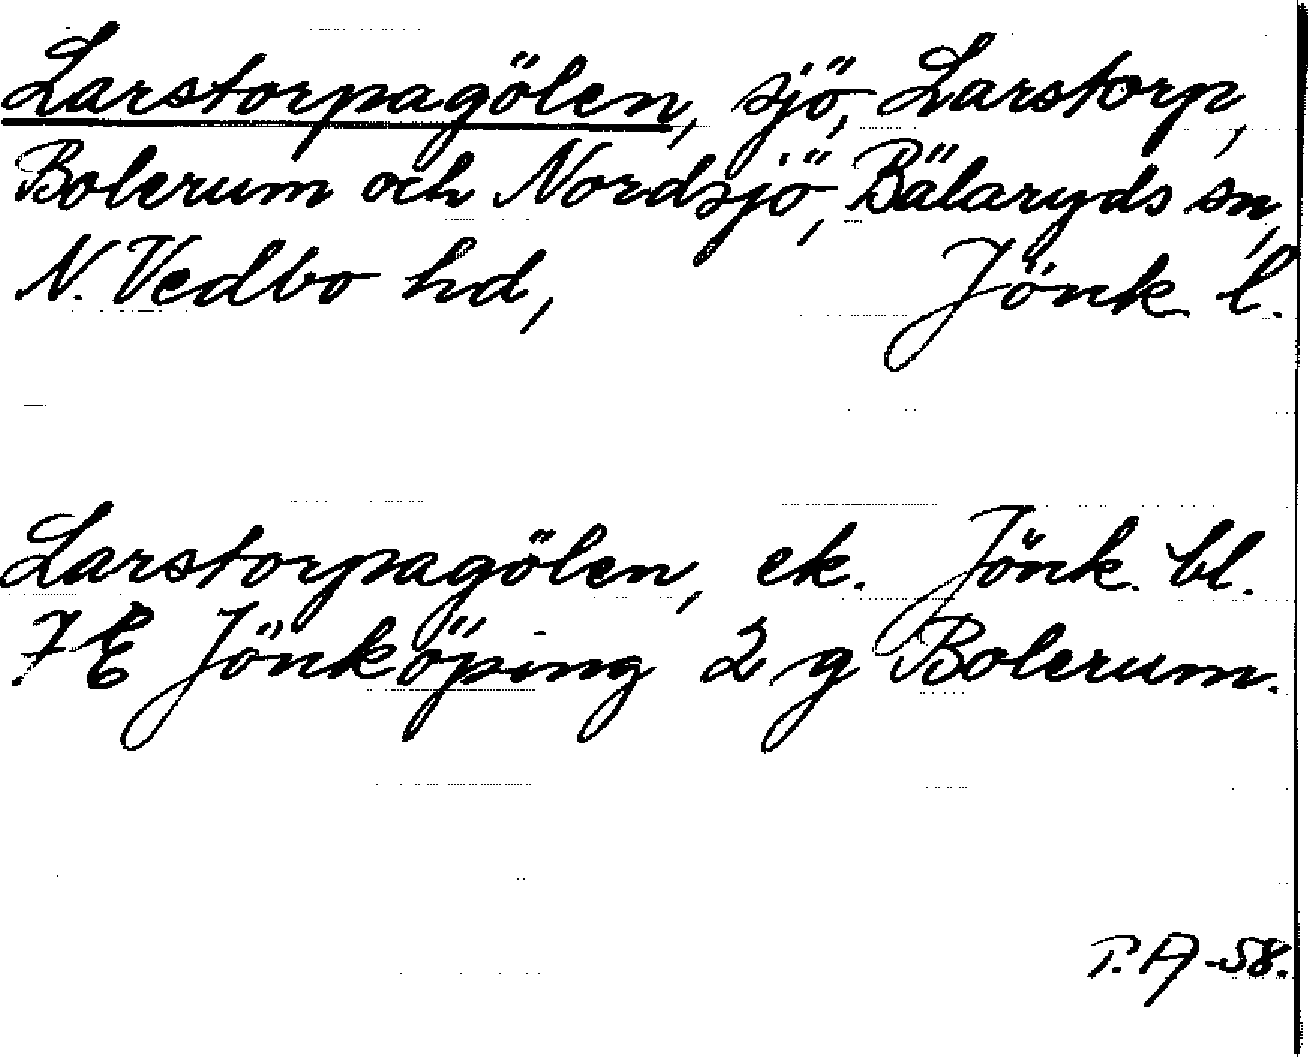 Larstorpagölen, sjö, Larstorp,
Bolerum och Nordsjö, Bälaryds sn,
N. Vedbo hd, Jönk l.
Larstorpagölen, ek. Jönk. bl.
7E Jönköping 2 g Bolerum.
P.A-58.